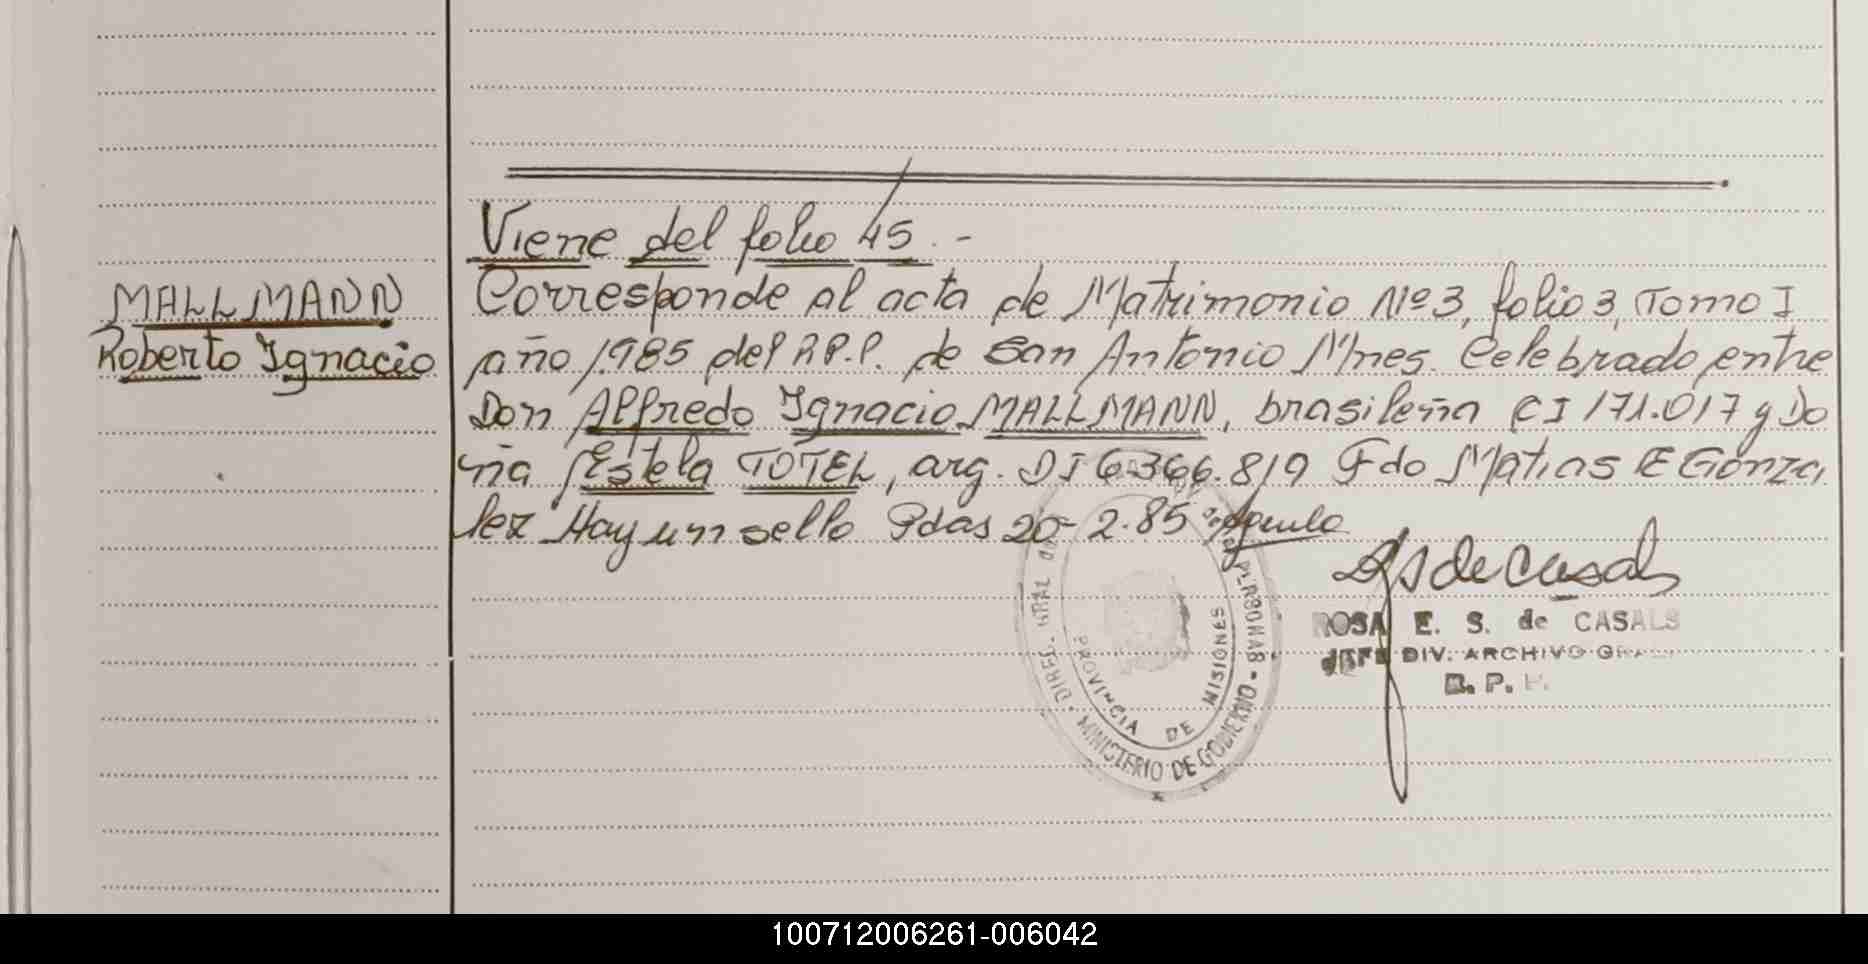 Viene del folio 45.-
MALLMANN
Roberto Ignacio
Corresponde al acta de Matrimonio Nº3, folio 3, Tomo I
año 1.985 del R.P.P. de San Antonio Mnes. Celebrado entre
Don Alfredo Ignacio MALLMANN, brasileña CI 171.017 y Do
ña Estela TOTEL, arg. DI 6.366.819 Fdo Matias E Gonza
lez Hay un sello Pdas 20-2-85
ROSA E. S. de CASALS
JEFE DIV. ARCHIVO GRAL
R. P. P.
DIREC. GRAL DEL PERSONAS - MINISTERIO DE GOBIERNO -
PROVINCIA DE MISIONES
100712006261-006042